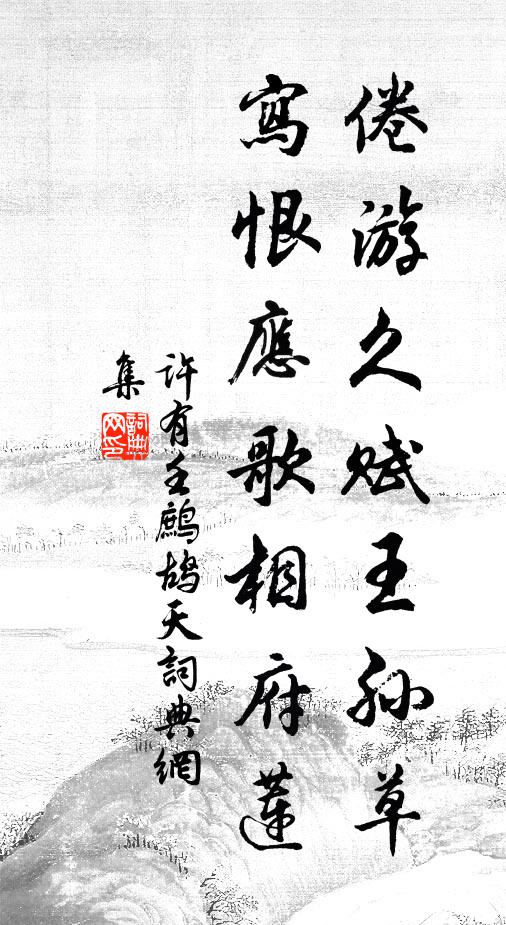 倦游久赋王孙草
寫恨應歌相府蓮
許有壬鷓鴣天詞典網
集
詞典网印